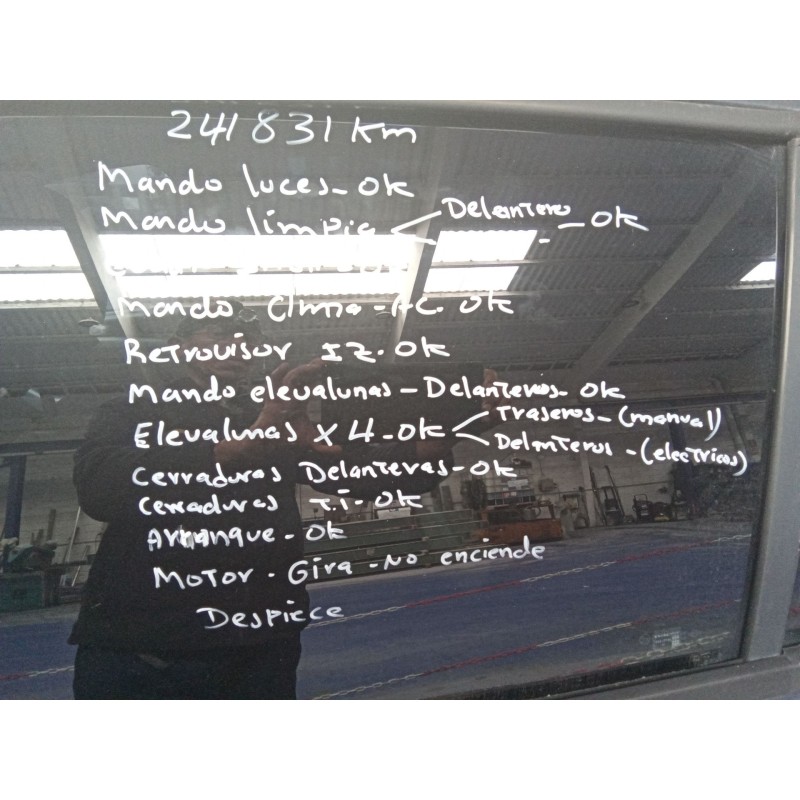 241831 km
Mando luces - OK
Mando limpia < Delantero - OK
-
Mando Clima - AC. OK
Retrovisor IZ. OK
Mando elevalunas - Delanteros - OK
Elevalunas x 4 - OK < Traseros - (manual)
Delanteros - (electricos)
Cerraduras Delanteras - OK
Cerraduras T.I - OK
Arranque - OK
MOTOR - Gira - No enciende
Despiece